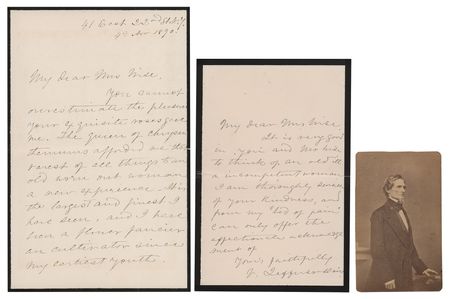 41 East 22nd St N.Y.
4 Nov 1890.
My dear Mrs Wise.
You cannot
overestimate the pleasure
your exquisite roses gave
me. The Queen of chrysan
themums afforded me the
rarest of all things to an
old worn out woman
a new experience. It is
the largest and finest I
have seen, and I have
been a flower fancier
an cultivator since
my earliest youth.
My dear Mrs Wise
It is very good
in you and Mr Wise
to think of an old ill
incompetent woman.
I am thoroughly
of your kindness, and
from my bed of pain
can only offer this
affectionate acknowledge
ment of
Yours faithfully
V. Jefferson Davis